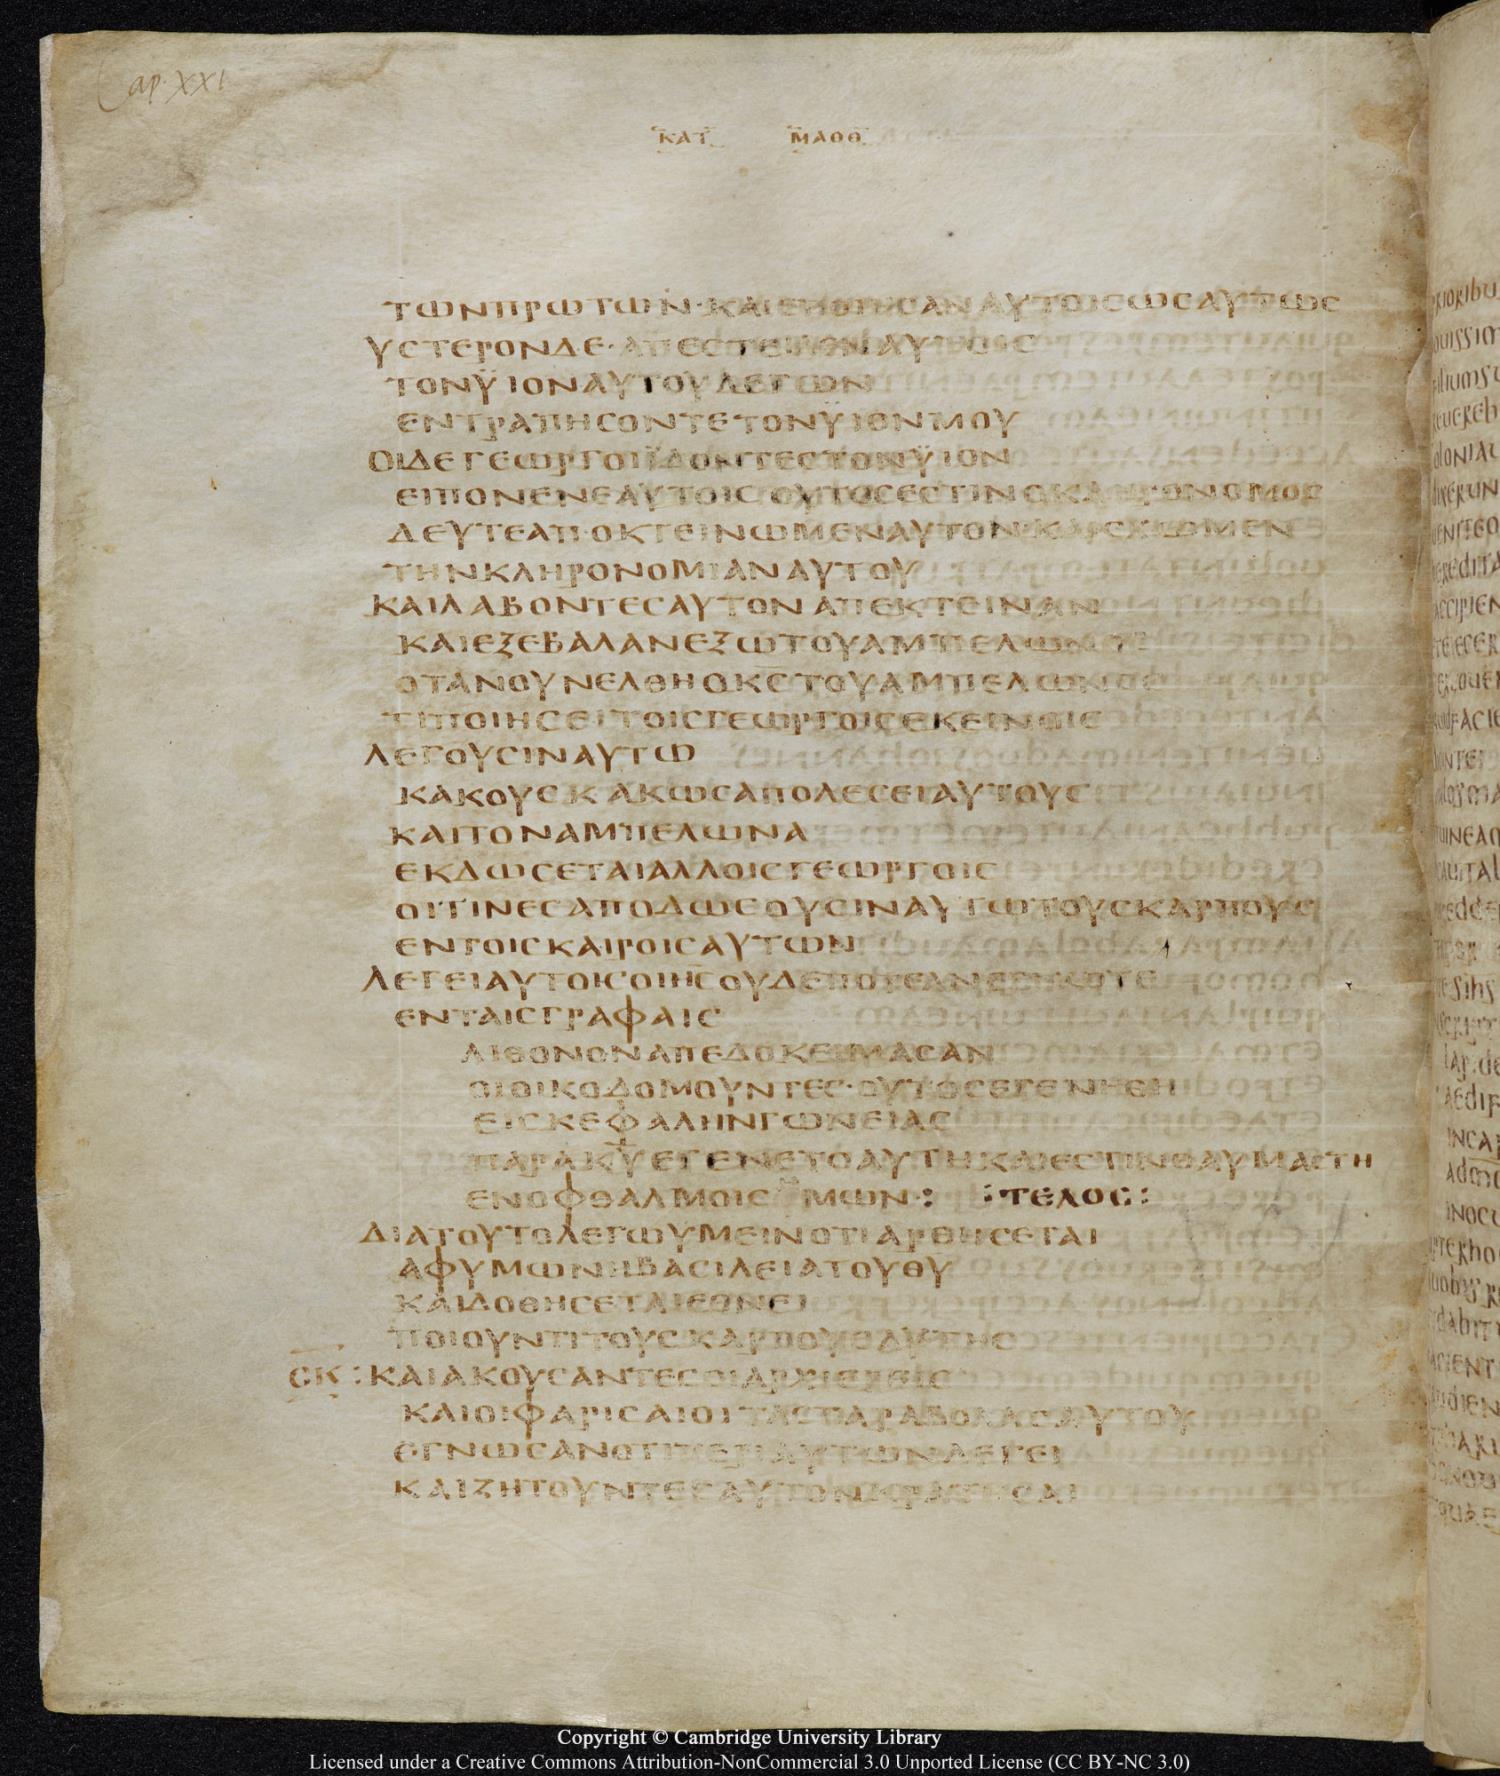 Cap. XXI
ΚΑΤ ΜΑΘΘ
ΤΩΝΠΡΩΤΩΝ·ΚΑΙΕΠΟΙΗCΑΝΑΥΤΟΙCΩCΑΥΤΩC
ΥCΤΕΡΟΝΔΕ·ΑΠΕCΤΕΙΛΕΝΑΥΤΟΙC
ΤΟΝΫΙΟΝΑΥΤΟΥΛΕΓΩΝ
ΕΝΤΡΑΠΗCΟΝΤΕΤΟΝΫΙΟΝΜΟΥ
ΟΙΔΕΓΕΩΡΓΟΙΪΔΟΝΤΕCΤΟΝΫΙΟΝ
ΕΙΠΟΝΕΝΕΑΥΤΟΙC ΟΥΤΟCΕCΤΙΝΟΚΛΗΡΟΝΟΜΟC
ΔΕΥΤΕΑΠ·ΟΚΤΕΙΝΩΜΕΝΑΥΤΟΝ·ΚΑΙCΧΩΜΕΝ
ΤΗΝΚΛΗΡΟΝΟΜΙΑΝΑΥΤΟΥ
ΚΑΙΛΑΒΟΝΤΕCΑΥΤΟΝΑΠΕΚΤΕΙΝΑΝ
ΚΑΙΕΞΕΒΑΛΑΝΕΞΩΤΟΥΑΜΠΕΛΩΝΟC
ΟΤΑΝΟΥΝΕΛΘΗΟΚCΤΟΥΑΜΠΕΛΩΝΟC
ΤΙΠΟΙΗCΕΙΤΟΙCΓΕΩΡΓΟΙCΕΚΕΙΝΟΙC
ΛΕΓΟΥCΙΝΑΥΤΩ
ΚΑΚΟΥCΚΑΚΩCΑΠΟΛΕCΕΙΑΥΤΟΥC
ΚΑΙΤΟΝΑΜΠΕΛΩΝΑ
ΕΚΔΩCΕΤΑΙΑΛΛΟΙCΓΕΩΡΓΟΙC
ΟΙΤΙΝΕCΑΠΟΔΩCΟΥCΙΝΑΥΤΩΤΟΥCΚΑΡΠΟΥC
ΕΝΤΟΙCΚΑΙΡΟΙCΑΥΤΩΝ
ΛΕΓΕΙΑΥΤΟΙCΟΙΗCΟΥΔΕΠΟΤΕΑΝΕΓΝΩΤΕ
ΕΝΤΑΙCΓΡΑΦΑΙC
ΛΙΘΟΝΟΝΑΠΕΔΟΚΕΙΜΑCΑΝ
ΟΙΟΙΚΟΔΟΜΟΥΝΤΕC·ΟΥΤΟCΕΓΕΝΗΘΗ
ΕΙCΚΕΦΑΛΗΝΓΩΝΕΙΑC
ΠΑΡΑΚΥΕΓΕΝΕΤΟΑΥΤΗΚΑΙΕCΤΙΝΘΑΥΜΑCΤΗ
ΕΝΟΦΘΑΛΜΟΙCΗΜΩΝ: :ΤΕΛΟC:
ΔΙΑΤΟΥΤΟΛΕΓΩΥΜΕΙΝΟΤΙΑΡΘΗCΕΤΑΙ
ΑΦΥΜΩΝΗΒΑCΙΛΕΙΑΤΟΥΘΥ
ΚΑΙΔΟΘΗCΕΤΑΙΕΘΝΕΙ
ΠΟΙΟΥΝΤΙΤΟΥCΚΑΡΠΟΥCΑΥΤΗC
CΚ: ΚΑΙΑΚΟΥCΑΝΤΕCΟΙΑΡΧΙΕΡΕΙC
ΚΑΙΟΙΦΑΡΙCΑΙΟΙΤΑCΠΑΡΑΒΟΛΑCΑΥΤΟΥ
ΕΓΝΩCΑΝΟΤΙΠΕΡΙΑΥΤΩΝΛΕΓΕΙ
ΚΑΙΖΗΤΟΥΝΤΕCΑΥΤΟΝΚΡΑΤΗCΑΙ
Copyright © Cambridge University Library
Licensed under a Creative Commons Attribution-NonCommercial 3.0 Unported License (CC BY-NC 3.0)